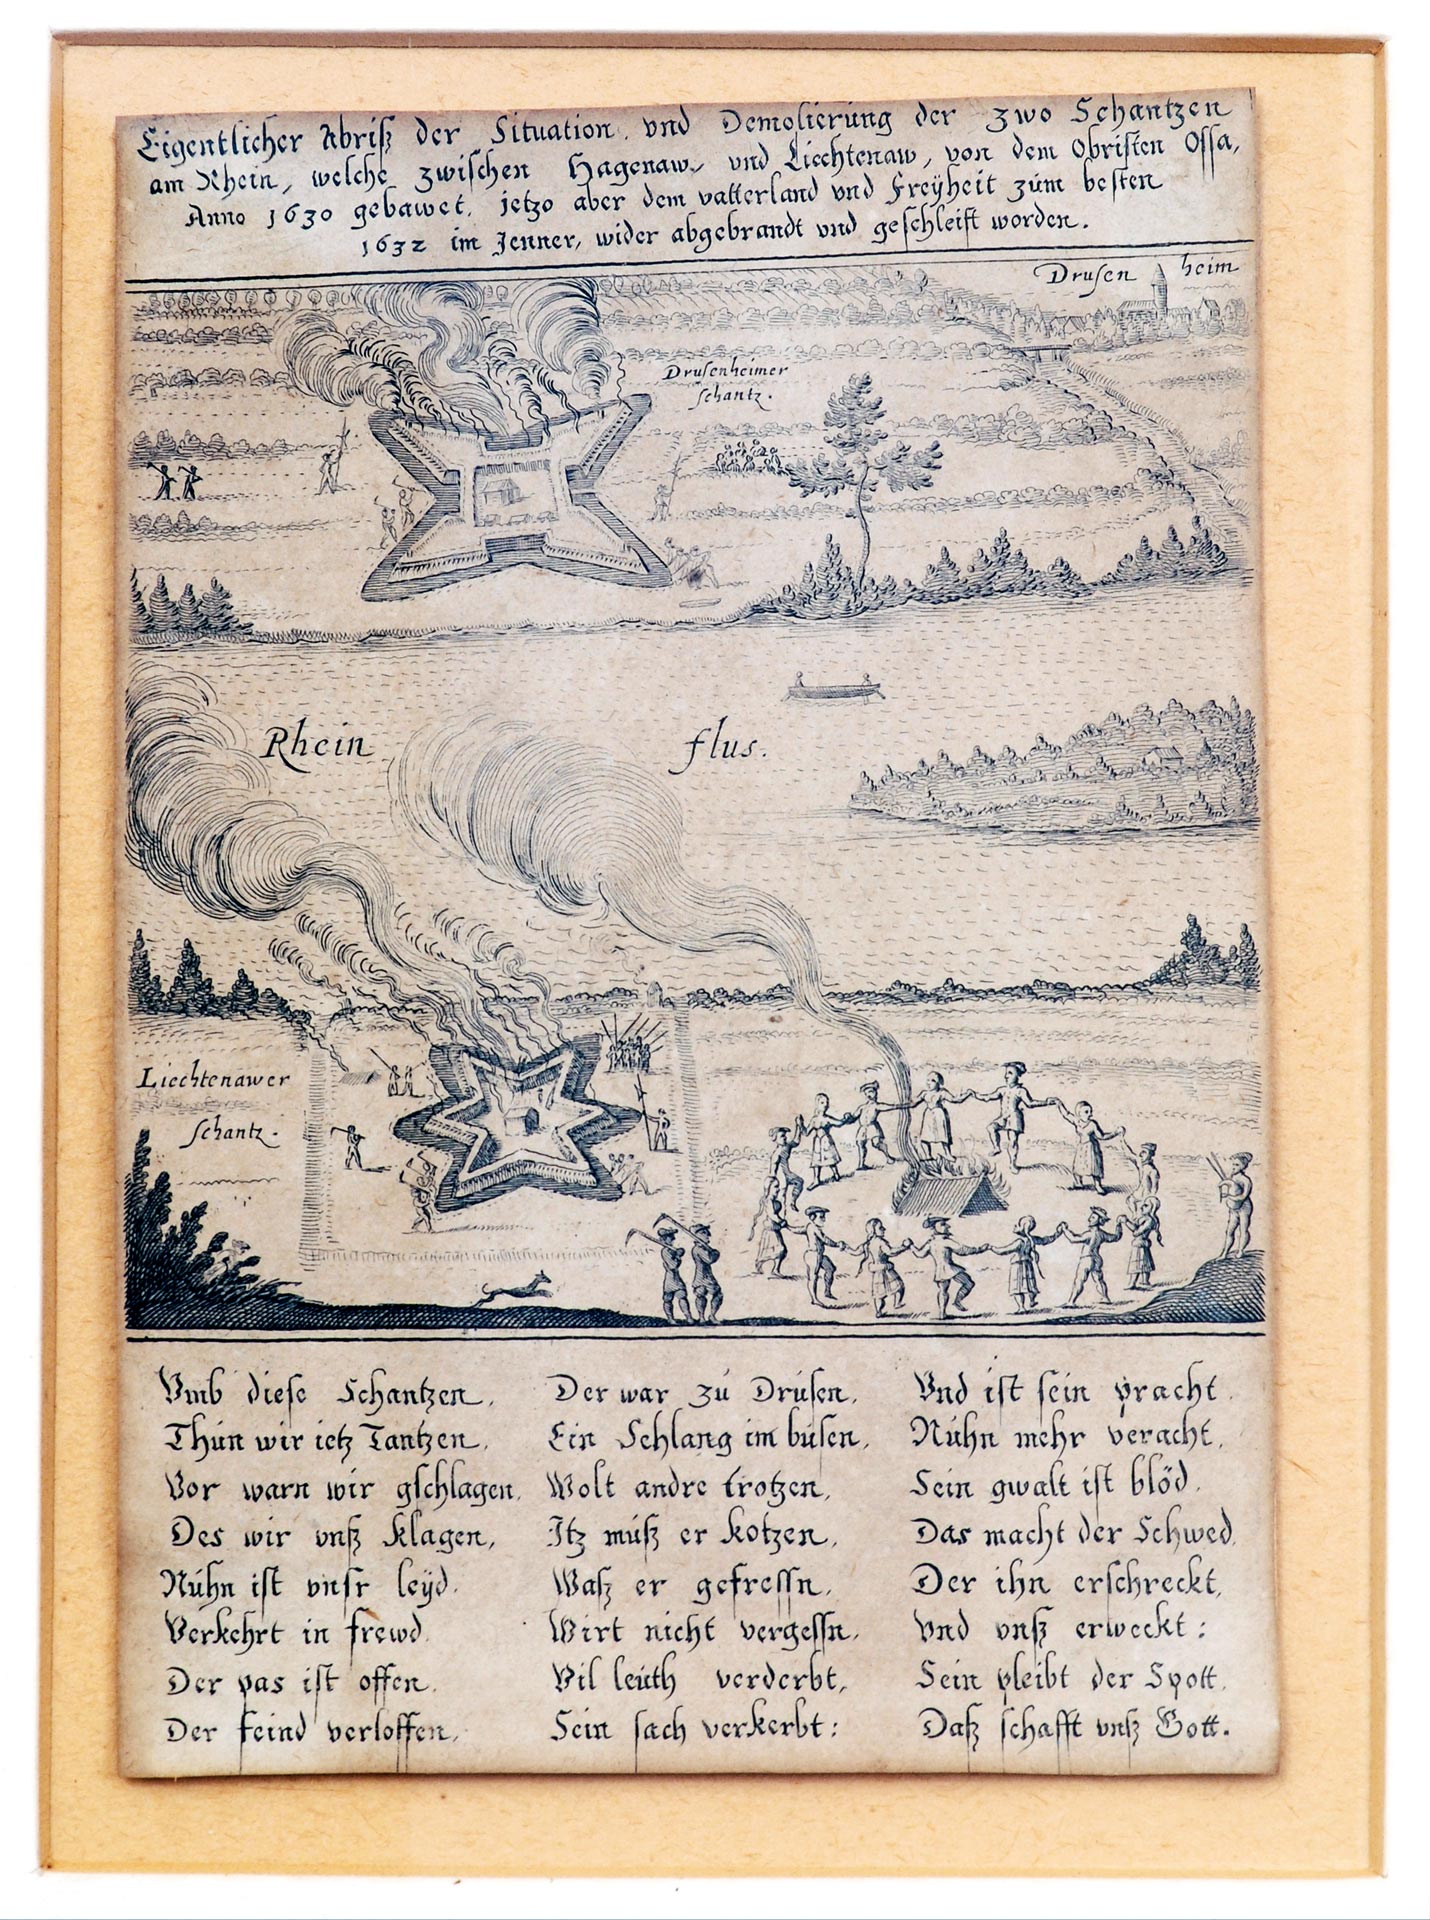 Eigentlicher Abriß der Situation, vnd Demolierúng der zwo Schantzen
am Rhein, welche zwischen Hagenaw, vnd Liechtenaw, von dem Obristen Ossa,
Anno 1630 gebawet, jetzo aber dem vatterland vnd Freÿheit zúm besten
1632 im Jenner, wider abgebrandt vnd geschleift worden.
Drusen heim
Drusenheimer
Schantz.
Rhein flus.
Liechtenawer
Schantz.
Vmb diese Schantzen,
Thún wir ietz Tantzen,
Vor warn wir gschlagen,
Des wir vnß klagen,
Núhn ist vnsr leÿd,
Verkehrt in frewd,
Der pas ist offen,
Der feind verloffen,
Der war zú Drúsen,
Ein Schlang im búsen,
Wolt andre trotzen,
Itz múß er kotzen,
Waß er gefressn,
Wirt nicht vergessn,
Vil leúth verderbt,
Sein sach verkerbt:
Vnd ist sein pracht,
Núhn mehr veracht,
Sein gwalt ist blöd,
Das macht der Schwed,
Der ihn erschreckt,
Vnd vnß erweckt:
Sein pleibt der Spott,
Daß schafft vnß Gott.